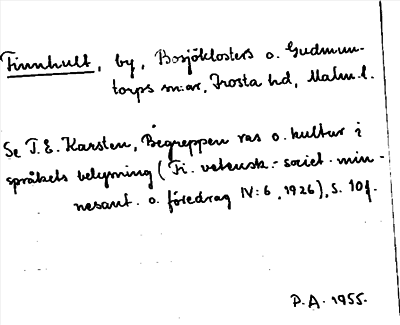 Finnhult, by, Bosjöklosters o. Gudmun-
torps s:nar, Frosta hd, Malm. l.
Se T. E. Karsten, Begreppen ras o. kultur i
språkets belysning (Fi. vetensk.-societ. min-
nesant. o. föredrag IV:6, 1926), s. 10 f.
P. A. 1955.